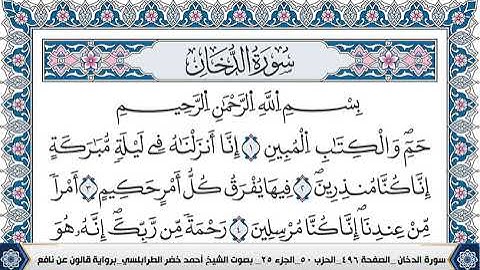 سُورَةُ الدُّخَانِ
بِسْمِ اللَّهِ الرَّحْمَٰنِ الرَّحِيمِ
حمٓ وَالْكِتَابِ الْمُبِينِ ١ إِنَّا أَنزَلْنَاهُ فِي لَيْلَةٍ مُّبَارَكَةٍ
إِنَّا كُنَّا مُنذِرِينَ ٢ فِيهَا يُفْرَقُ كُلُّ أَمْرٍ حَكِيمٍ ٣ أَمْراً
مِّنْ عِندِنَا إِنَّا كُنَّا مُرْسِلِينَ ٤ رَحْمَةً مِّن رَّبِّكَ إِنَّهُ هُوَ
سورة الدخان_الصفحة ٤٩٦_الحزب ٥٠_الجزء ٢٥_ بصوت الشيخ أحمد خضر الطرابلسي_برواية قالون عن نافع